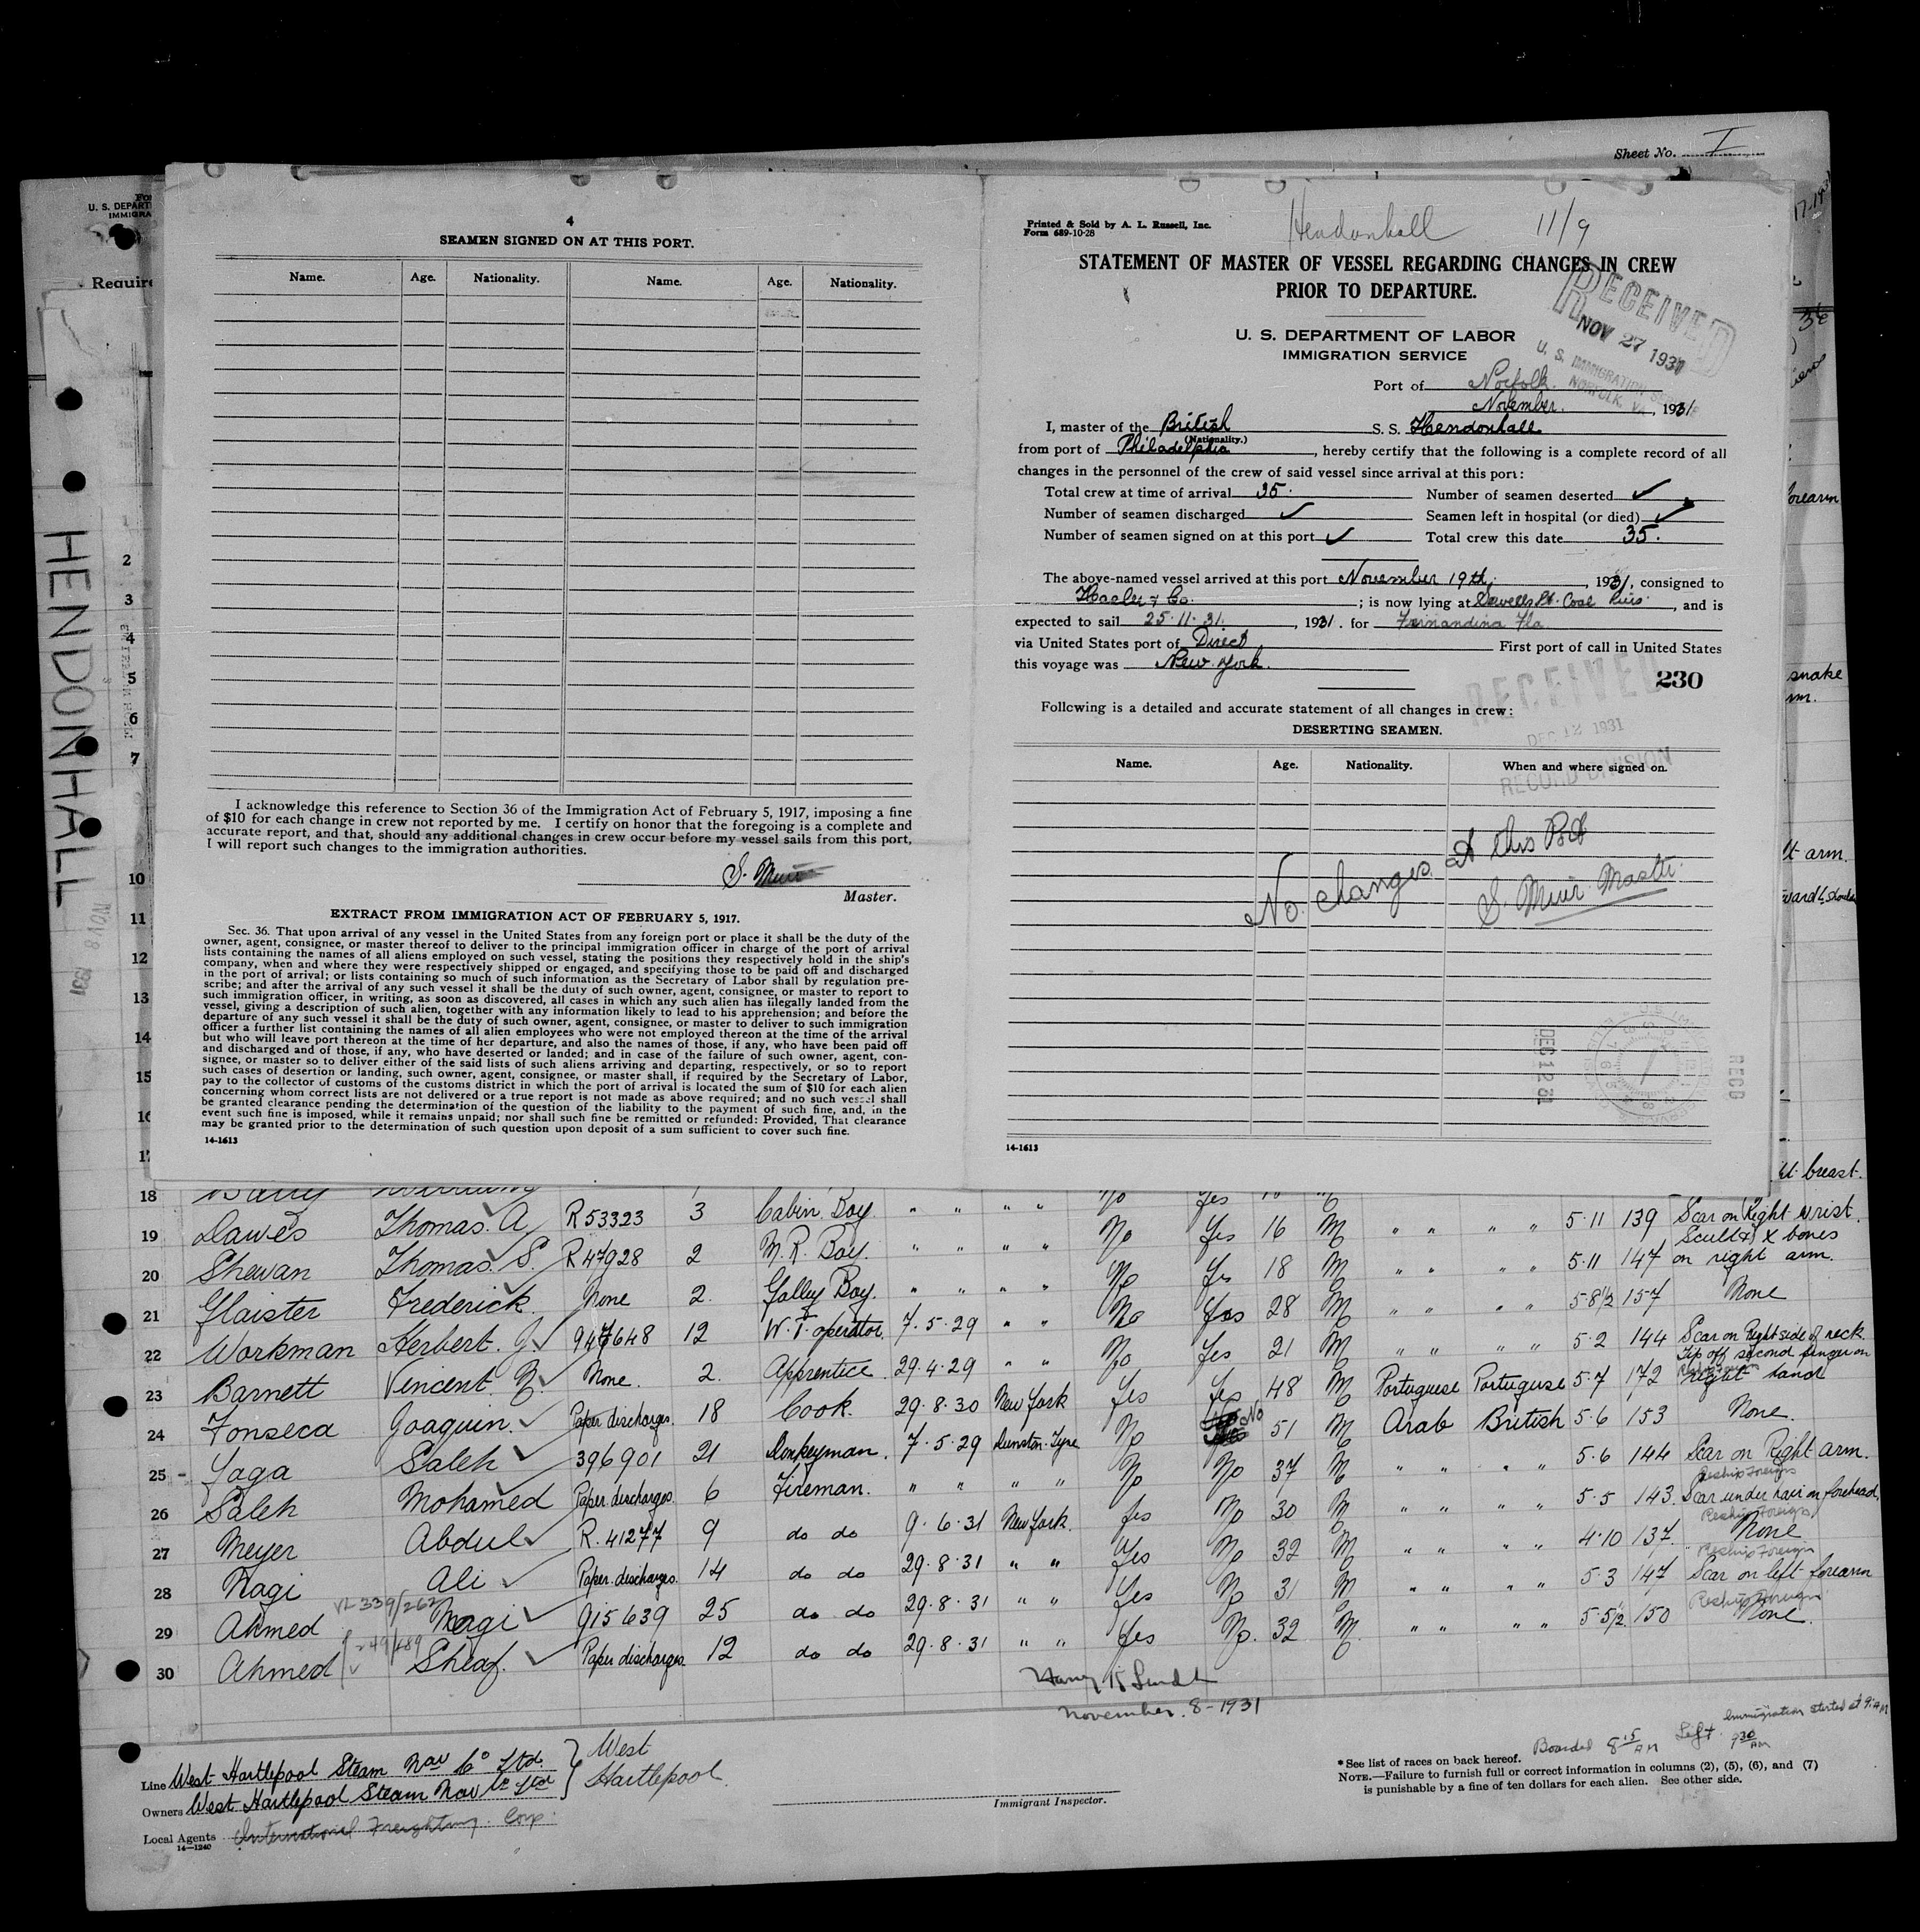 Sheet No. I
U. S. DEPART
IMMIGRA
Require
HENDONHALL
NOV 8 1931
4
SEAMEN SIGNED ON AT THIS PORT.
Name. Age. Nationality. Name. Age. Nationality.
I acknowledge this reference to Section 36 of the Immigration Act of February 5, 1917, imposing a fine
of $10 for each change in crew not reported by me. I certify on honor that the foregoing is a complete and
accurate report, and that, should any additional changes in crew occur before my vessel sails from this port,
I will report such changes to the immigration authorities.
S. Muir
Master.
EXTRACT FROM IMMIGRATION ACT OF FEBRUARY 5, 1917.
Sec. 36. That upon arrival of any vessel in the United States from any foreign port or place it shall be the duty of the
owner, agent, consignee, or master thereof to deliver to the principal immigration officer in charge of the port of arrival
lists containing the names of all aliens employed on such vessel, stating the positions they respectively hold in the ship's
company, when and where they were respectively shipped or engaged, and specifying those to be paid off and discharged
in the port of arrival; or lists containing so much of such information as the Secretary of Labor shall by regulation pre-
scribe; and after the arrival of any such vessel it shall be the duty of such owner, agent, consignee, or master to report to
such immigration officer, in writing, as soon as discovered, all cases in which any such alien has illegally landed from the
vessel, giving a description of such alien, together with any information likely to lead to his apprehension; and before the
departure of any such vessel it shall be the duty of such owner, agent, consignee, or master to deliver to such immigration
officer a further list containing the names of all alien employees who were not employed thereon at the time of the arrival
but who will leave port thereon at the time of her departure, and also the names of those, if any, who have been paid off
and discharged and of those, if any, who have deserted or landed; and in case of the failure of such owner, agent, con-
signee, or master so to deliver either of the said lists of such aliens arriving and departing, respectively, or so to report
such cases of desertion or landing, such owner, agent, consignee, or master shall, if required by the Secretary of Labor,
pay to the collector of customs of the customs district in which the port of arrival is located the sum of $10 for each alien
concerning whom correct lists are not delivered or a true report is not made as above required; and no such vessel shall
be granted clearance pending the determination of the question of the liability to the payment of such fine, and, in the
event such fine is imposed, while it remains unpaid; nor shall such fine be remitted or refunded: Provided, That clearance
may be granted prior to the determination of such question upon deposit of a sum sufficient to cover such fine.
14-1613
Printed & Sold by A. L. Russell, Inc.
Form 689-10-28
Hendonhall 11/9
STATEMENT OF MASTER OF VESSEL REGARDING CHANGES IN CREW
PRIOR TO DEPARTURE.
RECEIVED
NOV 27 1931
U. S. IMMIGRATION SERVICE
NORFOLK, VA
U. S. DEPARTMENT OF LABOR
IMMIGRATION SERVICE
Port of Norfolk.
November. , 1931
I, master of the British S. S. Hendonhall
(Nationality.)
from port of Philadelphia , hereby certify that the following is a complete record of all
changes in the personnel of the crew of said vessel since arrival at this port:
Total crew at time of arrival 35. Number of seamen deserted ✓
Number of seamen discharged ✓ Seamen left in hospital (or died) ✓
Number of seamen signed on at this port ✓ Total crew this date 35.
The above-named vessel arrived at this port November 19th. , 1931, consigned to
Hasler & Co. ; is now lying at Sewells Pt. Coal Piers , and is
expected to sail 25.11.31. , 1931. for Fernandina Fla
via United States port of Direct First port of call in United States
this voyage was New York.
230
RECEIVED
DEC 12 1931
RECORD DIVISION
Following is a detailed and accurate statement of all changes in crew:
DESERTING SEAMEN.
Name. Age. Nationality. When and where signed on.
No changes At this Port
S. Muir Master.
DEC 12 31
RECD
14-1613
forearm
snake
arm.
breast.
2
3
4
5
6
7
10
11
12
13
14
15
16
17
18
19 Dawes Thomas. A R53323 3 Cabin Boy. " " " " No Yes 16 M " " " " 5.11 139 Scar on Right wrist.
20 Shewan Thomas. S. R47928 2 M. R. Boy. " " " " No Yes 18 M " " " " 5.11 147 Scull & X bones on right arm.
21 Glaister Frederick. None 2. Galley Boy. " " " " No Yes 28 M " " " " 5.8½ 157 None
22 Workman Herbert. G 947648 12 W. T. operator. 7.5.29 " " No Yes 21 M " " " " 5.2 144 Scar on Right side of neck.
23 Barnett Vincent. None. 2. Apprentice 29.4.29 " " Yes Yes 48 M Portuguese Portuguese 5.7 172 Tip off second finger on right hand
24 Fonseca Joaquin. Paper discharges. 18 Cook. 29.8.30 New York No No 51 M Arab British 5.6 153 None.
25 Yaga Saleh 396901 21 Donkeyman. 7.5.29 Dunston-Tyne No No 37 M " " " " 5.6 144 Scar on Right arm.
26 Saleh Mohamed Paper discharges. 6 Fireman. " " " " Yes No 30 M " " " " 5.5 143. Scar under hair on forehead.
27 Meyer Abdul R. 41277 9 do do 9.6.31 New York. Yes No 32 M " " " " 4.10 137. None
28 Nagi Ali Paper. discharges. 14 do do 29.8.31 " " Yes No 31 M " " " " 5.3 147 Scar on left forearm
29 Ahmed Nagi 915639 25 do do 29.8.31 " " Yes No. 32 M. " " " " 5.5½. 150 None.
30 Ahmed Sheaf. Paper discharges 12 do do 29.8.31 " "
November. 8-1931
Line West Hartlepool Steam Nav Co Ltd. } West
Owners West Hartlepool Steam Nav Co Ltd } Hartlepool.
Local Agents International Freighting Corp.
14-1240
Immigrant Inspector.
Immigration started at 9 AM
Boarded 8 15 AM Left 9 30 AM
* See list of races on back hereof.
NOTE.—Failure to furnish full or correct information in columns (2), (5), (6), and (7)
is punishable by a fine of ten dollars for each alien. See other side.